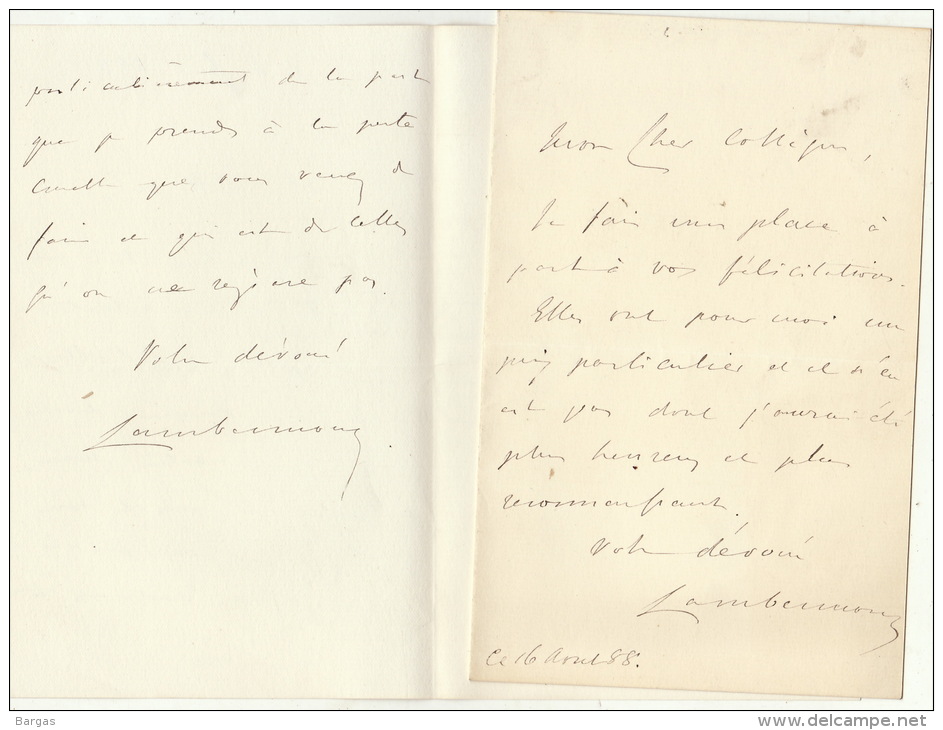 particulièrement de la part
que je prends à la perte
cruelle que vous venez de
faire et qui est de celles
qu'on ne répare pas.
Votre dévoué
Lambermont
Mon Cher Collègue,
Je fais une place à
part à vos félicitations.
Elles ont pour moi un
prix particulier et il n'en
est pas dont j'aurai été
plus heureux et plus
reconnaissant.
Votre dévoué
Lambermont
Ce 16 Aout 88.
Bargas
www.delcampe.net